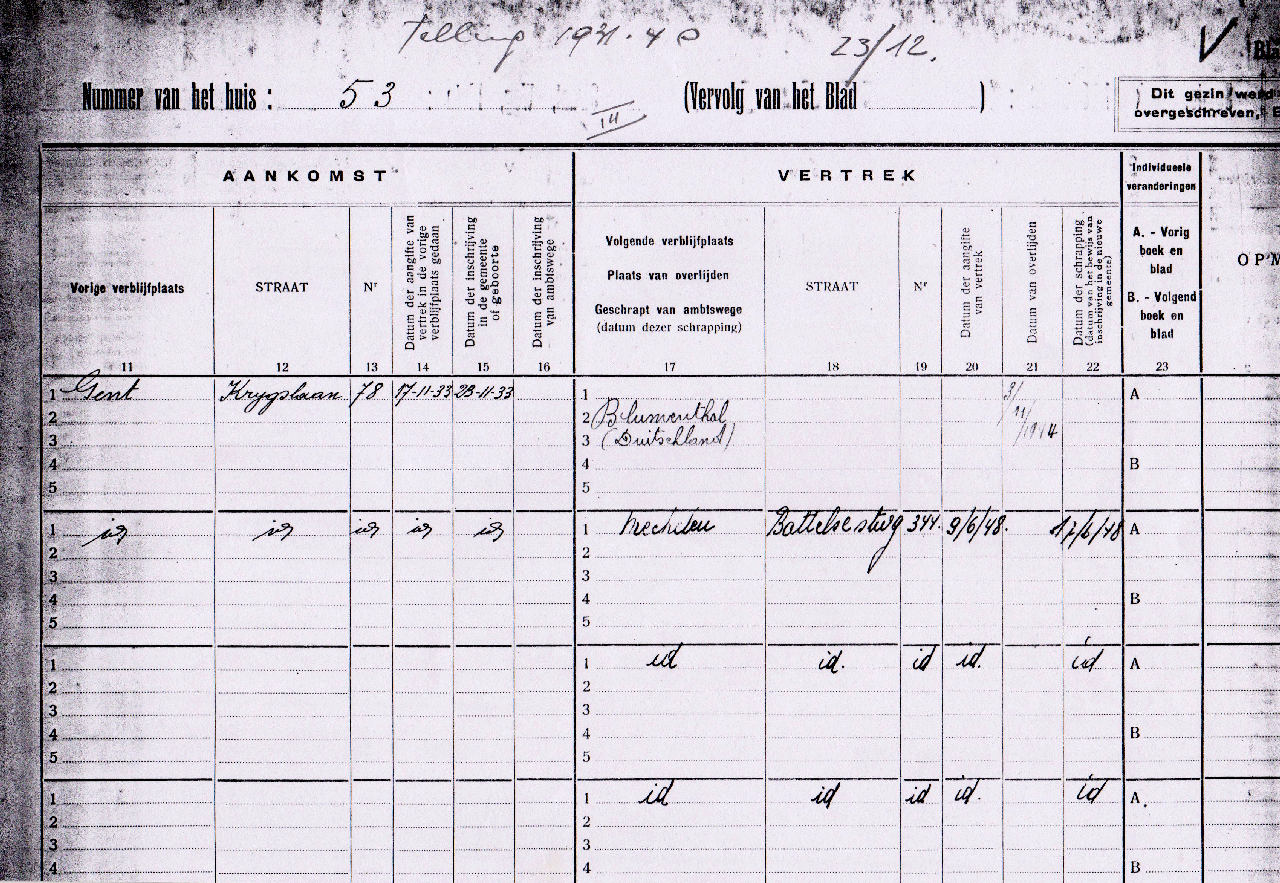 Telling 1931-40 23/12. V
Nummer van het huis : 53 (Vervolg van het Blad ) 
III
Dit gezin werd
overgeschreven,
AANKOMST VERTREK
Individueele
veranderingen
Vorige verblijfplaats
STRAAT
Nr
Datum der aangifte van
vertrek in de vorige
verblijfplaats gedaan
Datum der inschrijving
in de gemeente
of geboorte
Datum der inschrijving
van ambtswege
Volgende verblijfplaats
Plaats van overlijden
Geschrapt van ambtswege
(datum dezer schrapping)
STRAAT
Nr
Datum der aangifte
van vertrek
Datum van overlijden
Datum der schrapping
(datum van het bewijs van
inschrijving in de nieuwe
gemeente)
A. - Vorig
boek en
blad
B. - Volgend
boek en
blad
11 12 13 14 15 16 17 18 19 20 21 22 23
1 Gent Krygslaan 78 17-11-33 23-11-33 1 3/11/1944 A
2 2 Blumenthal
3 3 (Duitschland)
4 4 B
5 5
1 id id id id id 1 Mechelen Battelsestwg 344. 9/6/48. 17/6/48 A
2 2
3 3
4 4 B
5 5
1 1 id id. id id. id A
2 2
3 3
4 4 B
5 5
1 1 id id id id. id A.
2 2
3 3
4 4 B